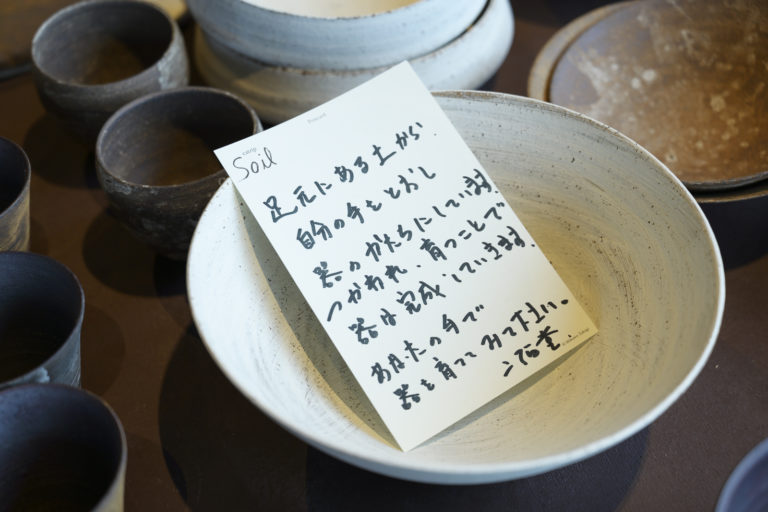 Postcard
camp
Soil
足元にある土から
自分の手をとおし
器のかたちにしています.
つかわれ、育つことで
器は完成していきます.
あなたの手で
器を育ててみて下さい。